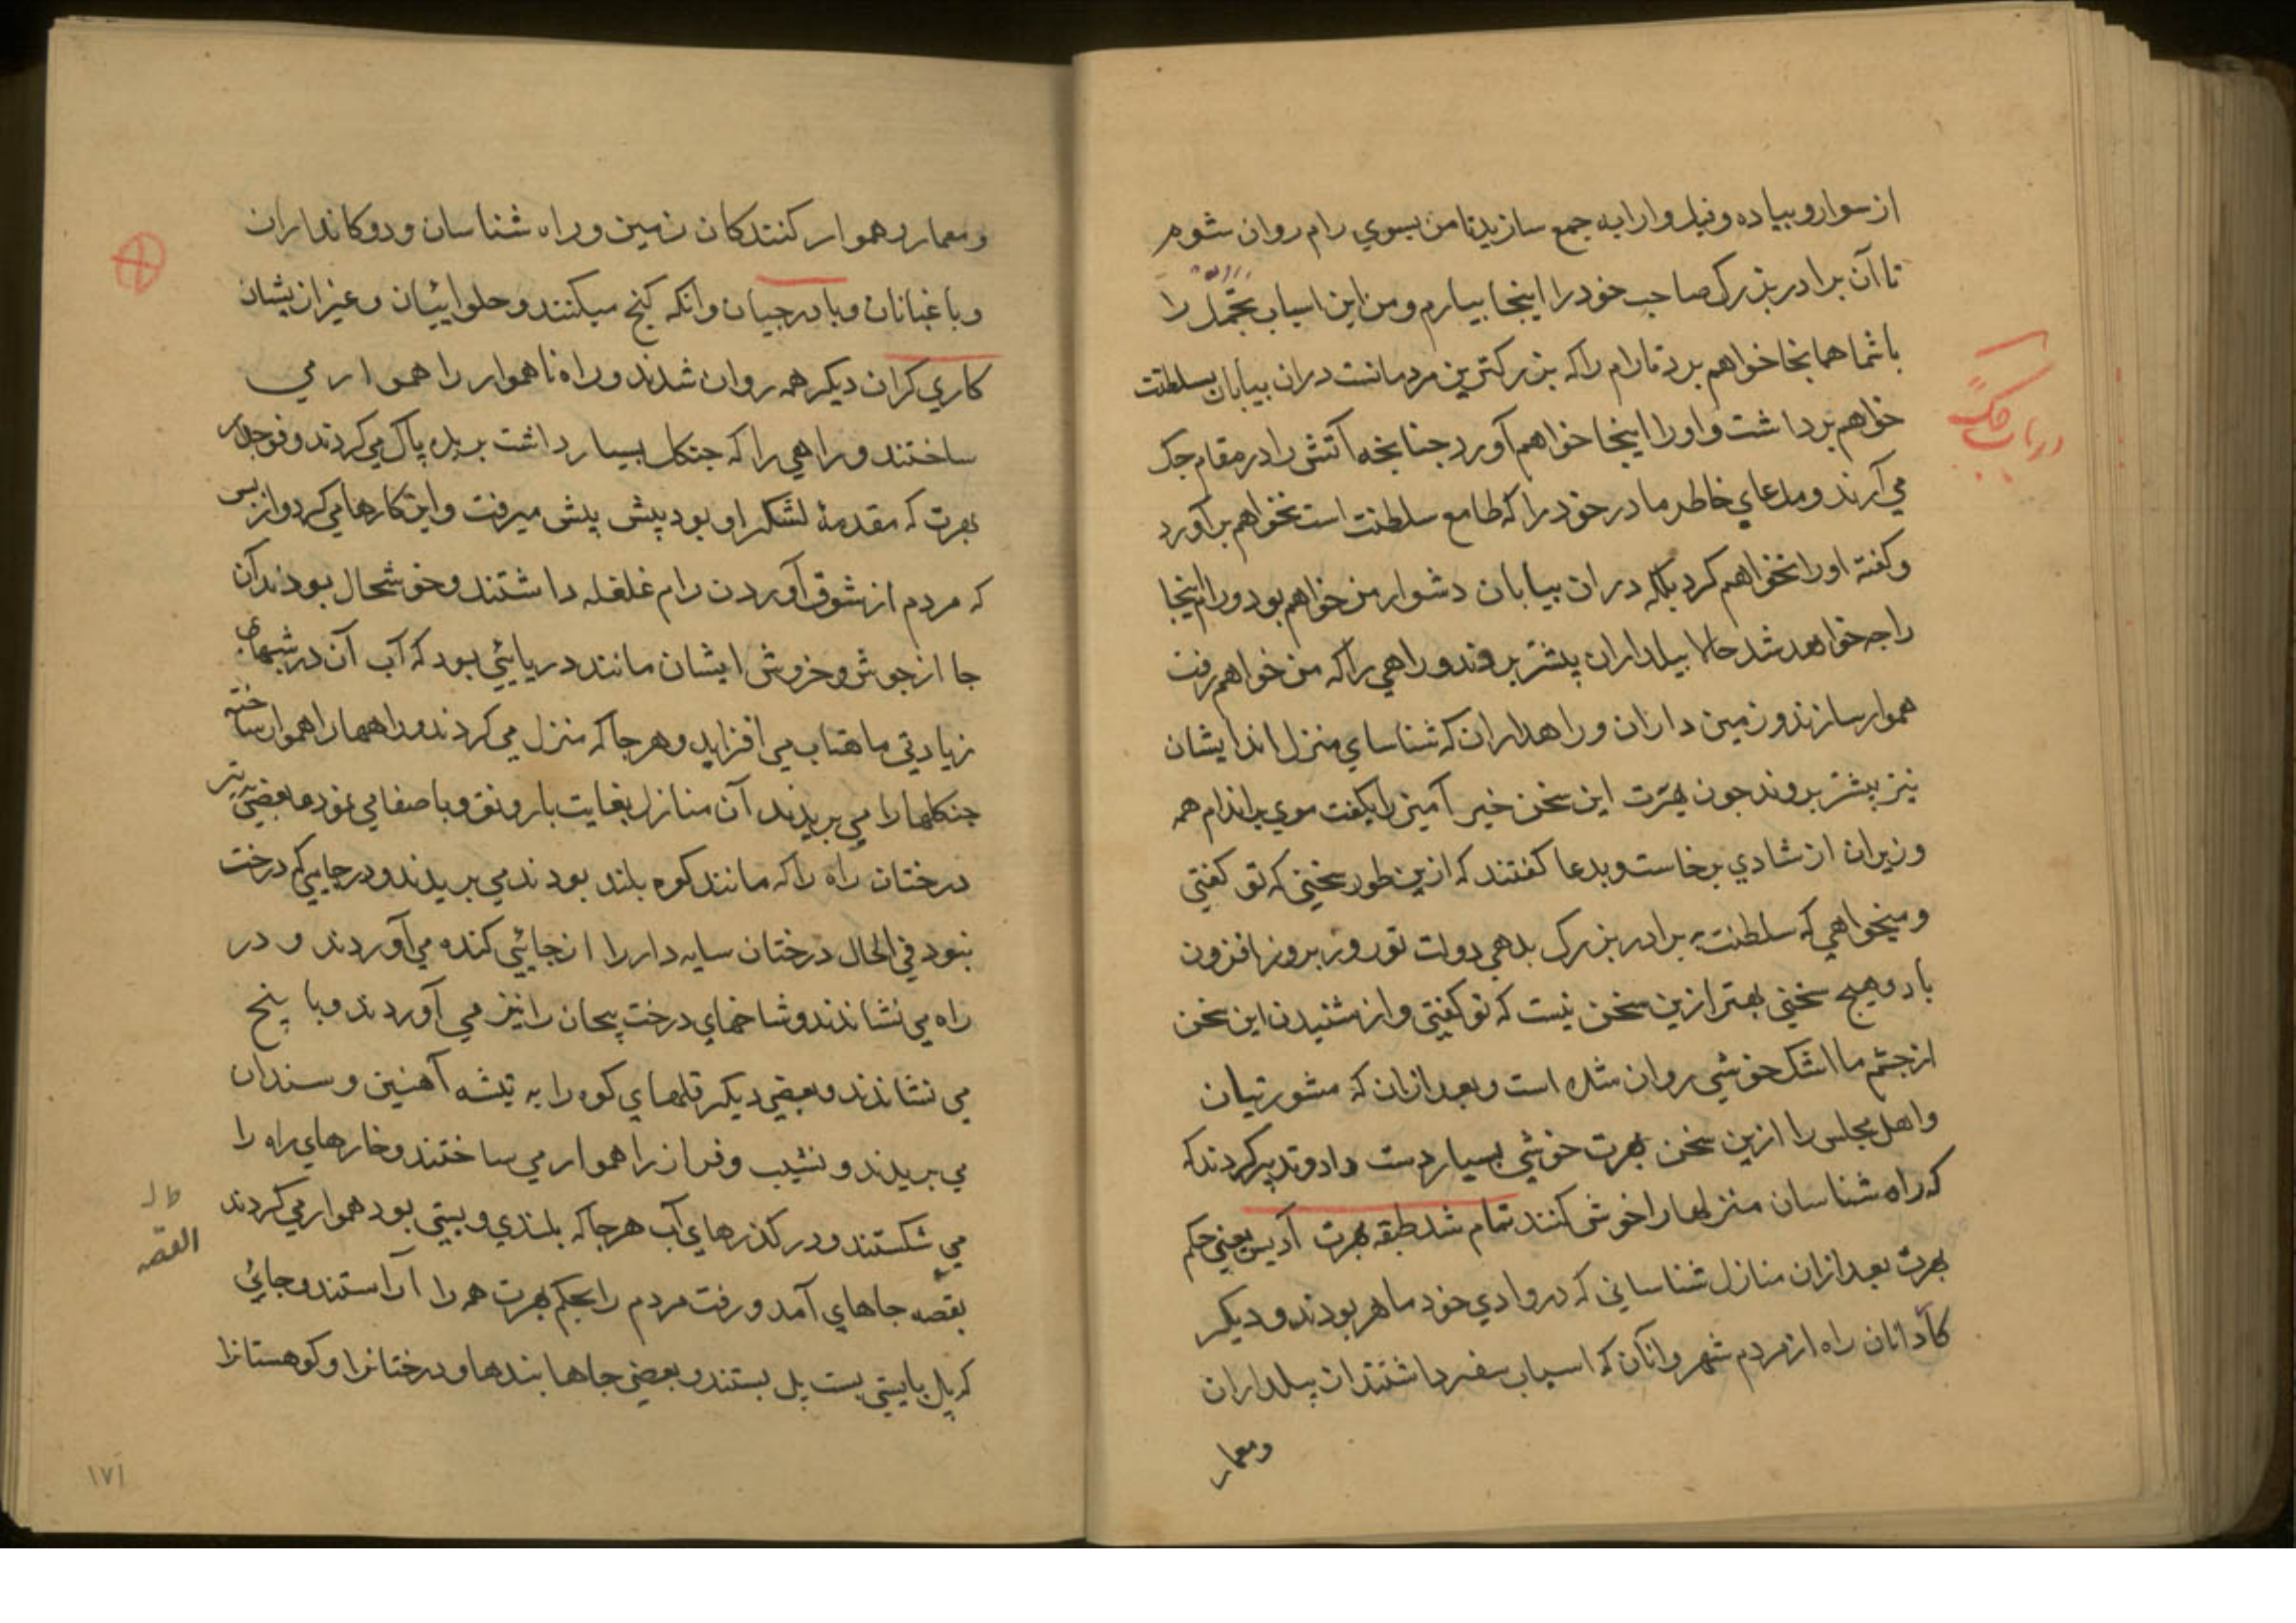 از سوار و پیاده و فیل و ارابه جمع سازید تا من بسوي رام روان شوم
تا آن برادر بزرک صاحب خود را اینجا بیارم و من این اسباب تجمل را
با شما همانجا خواهم برد تا رام را که بزرکترین مردمانست دران بیابان بسلطنت
خواهم برداشت و او را اینجا خواهم آورد جنانجه آتش را در مقام جک
می آرند و مدعاي خاطر مادر خود را که طامع سلطنت است نخواهم برآورد
و کفته او را نخواهم کرد بلکه دران بیابان دشوار من خواهم بود و رام اینجا
راجه خواهد شد حالا بیلداران پیشتر بروند و راهي را که من خواهم رفت
هموار سازند و زمین داران و راهداران که شناساي منزل اند ایشان
نیز پیشتر بروند جون بهرت این سخن خیر آمیز را بکفت موي بر اندام همه
وزیران از شادي برخاست و بدعا کفتند که ازین طور سخنی که تو کفتی
و میخواهي که سلطنت به برادر بزرک بدهي دولت تو روز بروز افزون
باد و هیج سخنی بهتر ازین سخن نیست که تو کفتی و از شنیدن این سخن
از جشم ما اشک خوشي روان شده است و بعد ازان که مشورتیان
و اهل مجلس را ازین سخن بهرت خوشي بسیار دست داد و تدبیر کردند که
که راه شناسان منزلها را خوش کنند تمام شد طبقه بهرت آدیس یعنی حکم
بهرت بعد ازان منازل شناسانی که در وادي خود ماهر بودند و دیکر
کاردانان راه از مردم شهر و آنان که اسباب سفر داشتند از بیلداران
و معمار
در باب جک
و معمار و هموار کنندکان زمین و راه شناسان و دوکانداران
و باغبانان و باورجیان و آنکه کنج میکنند و حلوائیان و غیر ازیشان
کاري کران دیکر همه روان شدند و راه ناهموار را هموار مي
ساختند و راهي را که جنکل بسیار داشت بریده پاک مي کردند و فوج
بهرت که مقدمهٔ لشکر او بود پیش پیش میرفت و این کارها مي کرد و از بس
که مردم از شوق آوردن رام غلغله داشتند و خوشحال بودند آن
جا از جوش و خروش ایشان مانند دریایئي بود که آب آن در شبهاي
زیادتي ماهتاب مي افزاید و هر جا که منزل مي کردند و راهها را هموار ساخته
جنکلها را مي بریدند آن منازل بغایت با رونق و با صفا مي نمود و بعضی تبر
درختان راه را که مانند کوه بلند بودند مي بریدند و در جایی که درخت
نبود في الحال درختان سایه دار را از جائیي کنده مي آوردند و در
راه مي نشاندند و شاخهاي درخت پیجان را نیز مي آوردند و با بیخ
مي نشاندند و بعضی دیکر قلهاي کوه را به تیشه آهنین و سندان
مي بریدند و نشیب و فراز را هموار مي ساختند و خارهاي راه را
مي شکستند و در کذرهاي آب هر جا که بلندي و پستي بود هموار مي کردند
بقصه جاهاي آمد و رفت مردم را بحکم بهرت همه را آراستند و جائي
که پل بایستي بست پل بستند و بعضی جاها بندها و درختانرا و کوهستانرا
القصه
۱۷۱